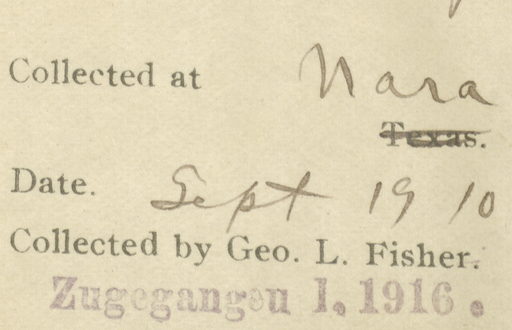 Collected at Nara
Texas.
Date. Sept 19 10
Collected by Geo. L. Fisher.
Zugegangen 1. 1916.